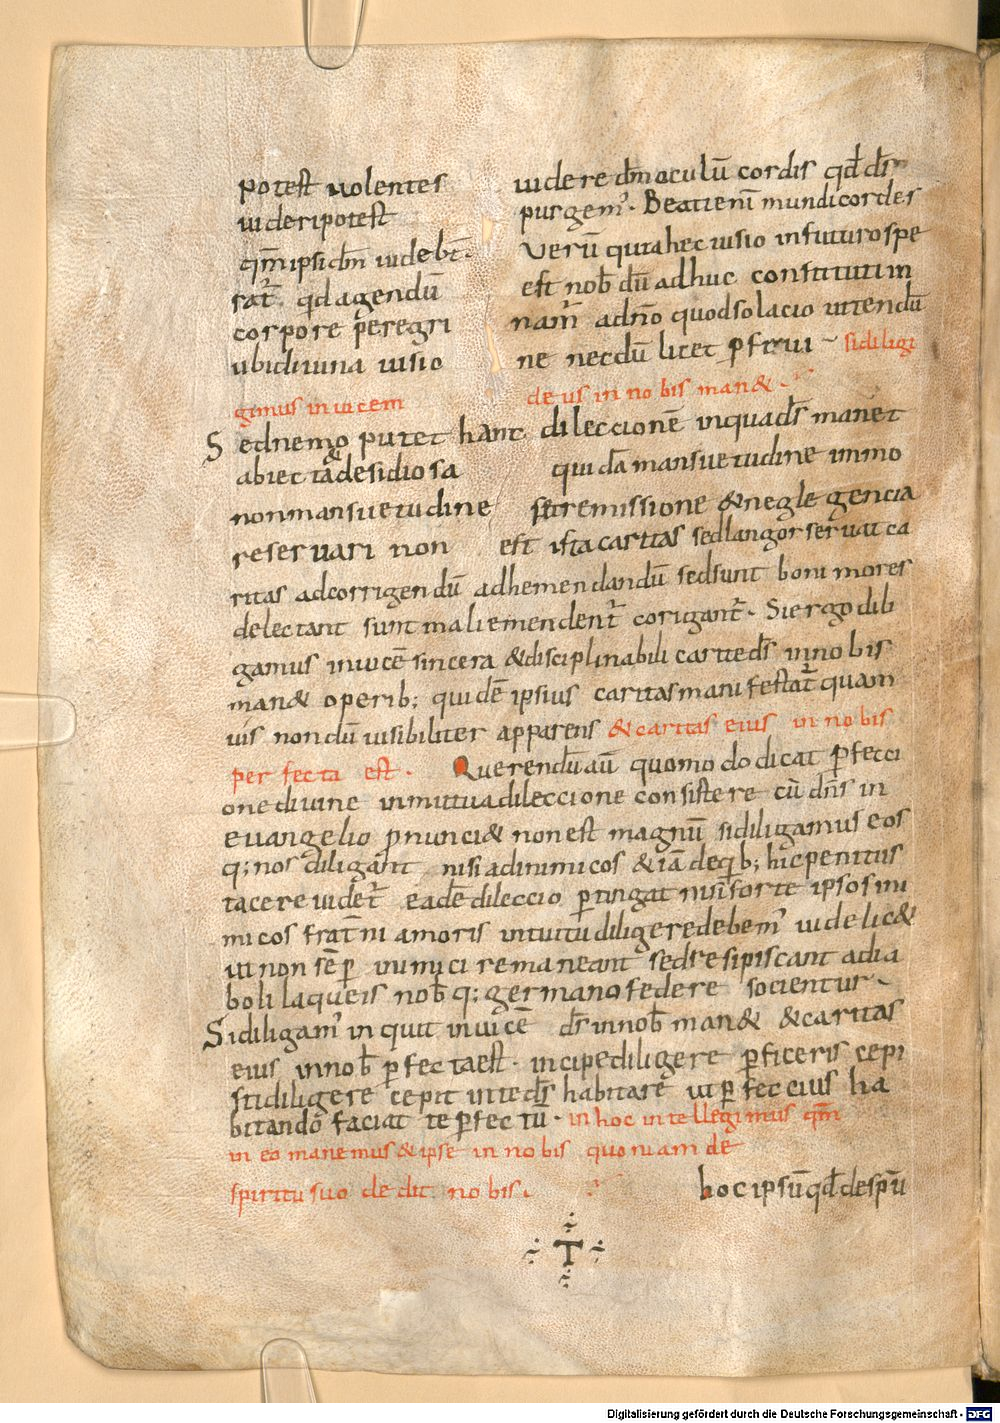 potest uolentes uidere dm̄ oculū cordis qd̄ ds̄
uideri potest purgem᾽. Beati enī mundi cordes
qm̄ ipsi dm̄ uidebt̄. Verū quia hec uisio in futuro spe
rat̄ qd agendū est nob̄ dū adhuc constituti in
corpore peregri namr̄ adn̄o quod solacio utendū
ubi diuina uisio ne necdū licet ꝑfrui sidiligi
gimus in uicem deus in nobis man&.
Sed nemo putet hanc dileccionē in qua ds̄ manet
abiecta desidiosa quidā mansuetudine immo
non mansuetudine set remissione & neglegencia
reseruari non est ista caritas sed langor seruat ca
ritas ad corrigendū adhemendandū sed sunt boni mores
delectant sunt mali emendent̄ corigant̄. Si ergo dili
gamus inuicē sincera & disciplinabili carite ds̄ in nobis
man& operib; quidē ipsius caritas manifestat̄ quam
uis nondū uisibiliter apparens & caritas eius in nobis
perfecta est. Querendū aū quomodo dicat ꝑfecci
one diuine in mutua dileccione consistere cū dn̄s in
euangelio pronunci& non est magnū si diligamus eos
q; nos diligant nisi ad inimicos & iā de qib; hic penitus
tacere uidet̄ eadē dileccio ꝑtingat nisi forte ipsos ini
micos frat̄ni amoris intuitu diligere debem᾽ uidelic&
ut non sēꝑ inimici remaneant sed resipiscant a dia
boli laqueis nob̄q; germano federe socientur
Si diligam᾽ inquit inuicē ds̄ in nob̄ man& & caritas
eius in nob̄ ꝑfecta est. incipe diligere ꝑficeris cepi
sti diligere cepit in te ds̄ habitare ut ꝑfec eius ha
bitandō faciat te ꝑfectū. in hoc intellegimus qm̄
in eo manemus & ipse in nobis quoniam de
spiritu suo dedit nobis. hoc ipsū qd̄ de spū
T
Digitalisierung gefördert durch die Deutsche Forschungsgemeinschaft - DFG